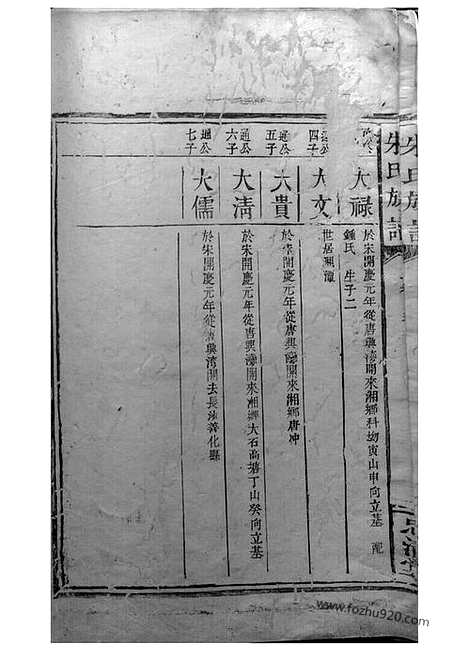 朱氏族譜
大祿
於宋開慶元年從唐興灣開來湘鄉科坳寅山申向立墓 配
鍾氏 生子二
通公
四子
大文
世居湘潭
通公
五子
大貴
於宋開慶元年從唐興灣開來湘鄉唐冲
通公
六子
大清
於宋開慶元年從唐興灣開來湘鄉大石高塘丁山癸向立墓
通公
七子
大儒
於宋開慶元年從唐興湾開去長沙善化縣
www.fozhu920.com